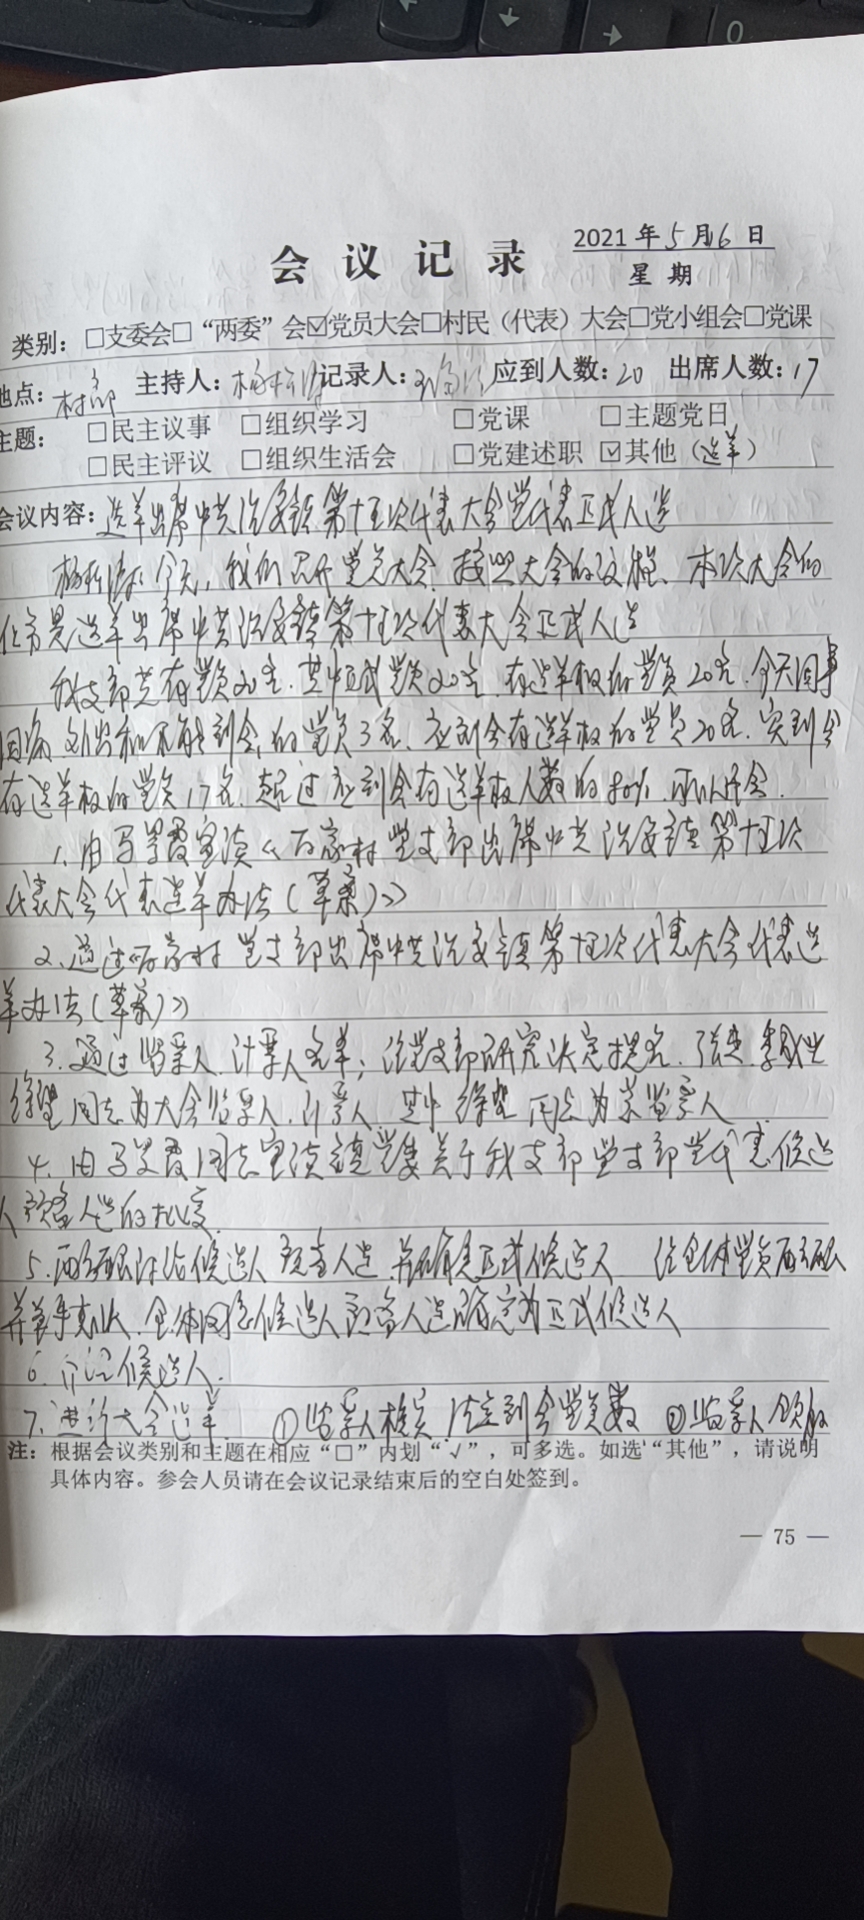 0
会议记录
2021年5月6日
星期
类别：□支委会□“两委”会☑党员大会□村民（代表）大会□党小组会□党课
地点：村部 主持人： 记录人： 应到人数：20 出席人数：17
主题： □民主议事 □组织学习 □党课 □主题党日
□民主评议 □组织生活会 □党建述职 ☑其他（选举）
会议内容：选举出席中共 镇第十五次代表大会党代表正式人选
今天，我们召开党员大会，按照大会的议程、本次大会的
任务是选举出席中共 镇第十五次代表大会正式人选
我支部共有党员20名，其中正式党员20名，有选举权的党员20名，今天因事
因病外出和不能到会的党员3名，应到会有选举权的党员20名，实到会
有选举权的党员17名，超过应到会有选举权人数的80%，可以开会．
1、由 宣读《 家村党支部出席中共 镇第十五次
代表大会代表选举办法（草案）》
2、通过 家村党支部出席中共 镇第十五次代表大会代表选
举办法（草案）》
3、通过监票人、计票人名单；经党支部研究决定提名、
同志为大会监票人、计票人 其中 同志为总监票人
4、由 同志宣读镇党委关于我支部党支部党代表候选
人预备人选的批复
5、 讨论候选人预备人选，并确定正式候选人 经全体党员
并举手表决，全体同意候选人预备人选确定为正式候选人
6、介绍候选人．
7、进行大会选举 ①监票人核实 到会党员数 ②监票人领取
注：根据会议类别和主题在相应“□”内划“√”，可多选。如选“其他”，请说明
具体内容。参会人员请在会议记录结束后的空白处签到。
— 75 —